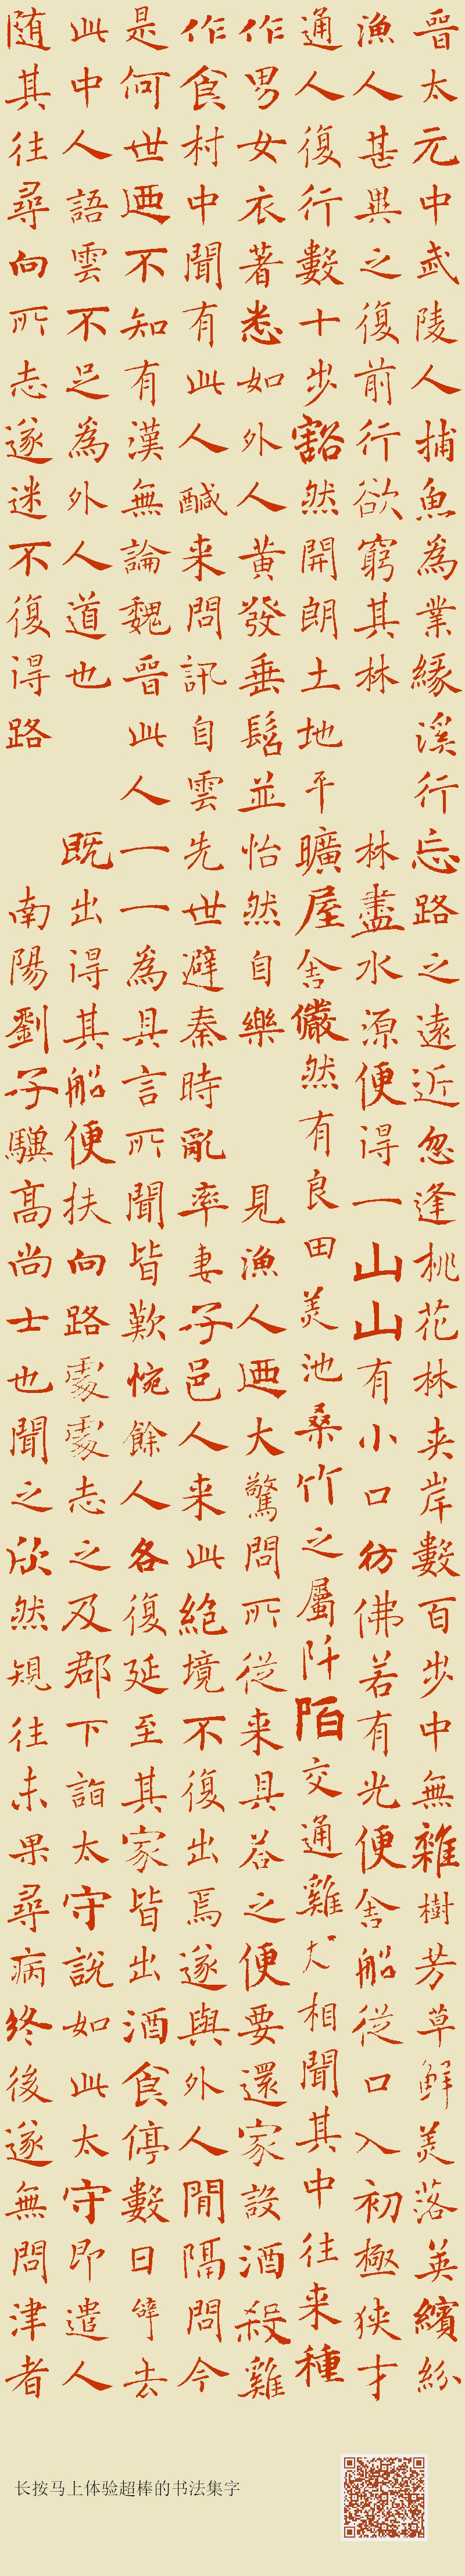 晉太元中武陵人捕魚為業緣溪行忘路之遠近忽逢桃花林夾岸數百步中無雜樹芳草鮮美落英繽紛
漁人甚異之復前行欲窮其林 林盡水源便得一山山有小口彷佛若有光便舍船從口入初極狹才
通人復行數十步豁然開朗土地平曠屋舍儼然有良田美池桑竹之屬阡陌交通雞犬相聞其中往来種
作男女衣著悉如外人黃發垂髫並怡然自樂 見漁人迺大驚問所從来具答之便要還家設酒殺雞
作食村中聞有此人鹹来問訊自雲先世避秦時亂率妻子邑人来此絕境不復出焉遂與外人間隔問今
是何世迺不知有漢無論魏晉此人一一為具言所聞皆歎惋餘人各復延至其家皆出酒食停數日辭去
此中人語雲不足為外人道也 既出得其船便扶向路處處志之及郡下詣太守說如此太守即遣人
随其往尋向所志遂迷不復得路 南陽劉子驥高尚士也聞之欣然規往未果尋病終後遂無問津者
长按马上体验超棒的书法集字